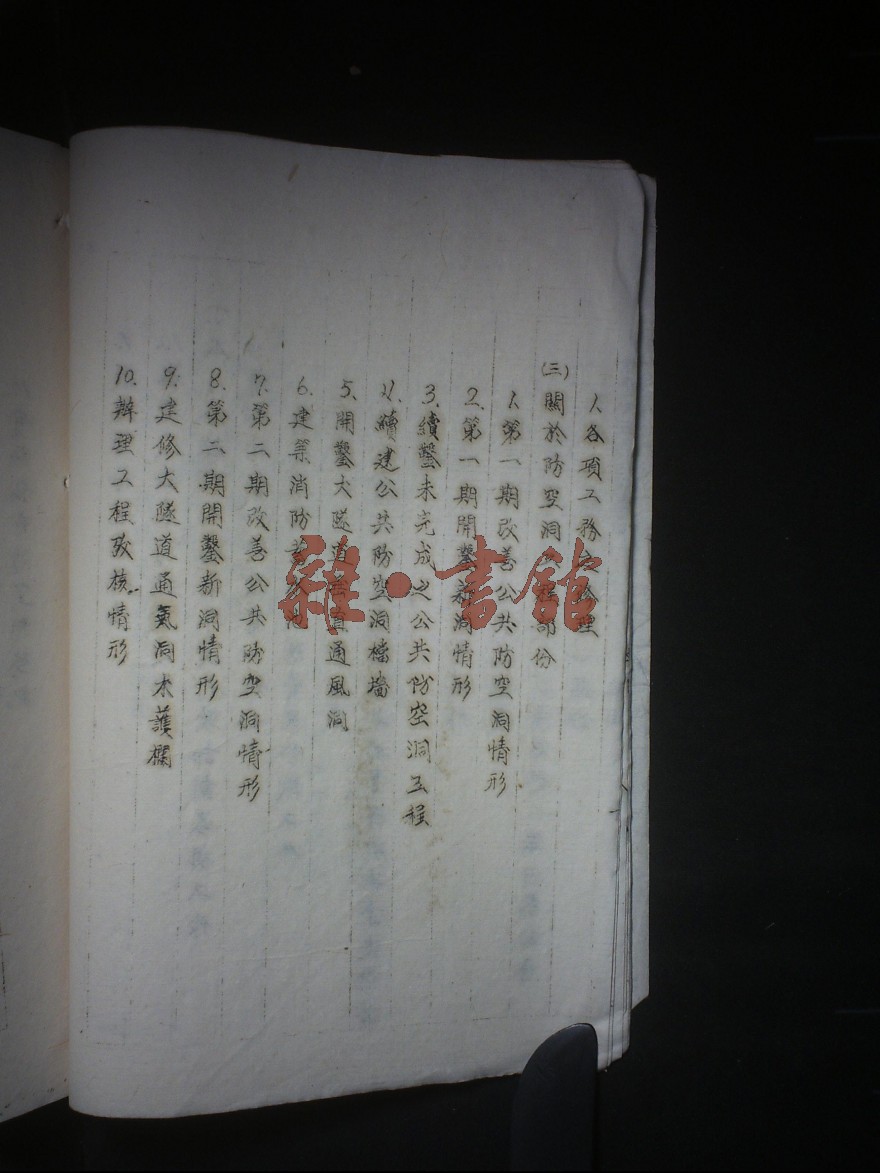 1.各項工務之
(三)關於防空洞部份
1.第一期改善公共防空洞情形
2.第一期開鑿新洞情形
3.續鑿未完成之公共防空洞工程
4.續建公共防空洞檔墻
5.開鑿大隧道垂直通風洞
6.建築消防
7.第二期改善公共防空洞情形
8.第二期開鑿新洞情形
9.建修大隧道通氣洞木護欄
10.辦理工程攷核情形
雜·書館